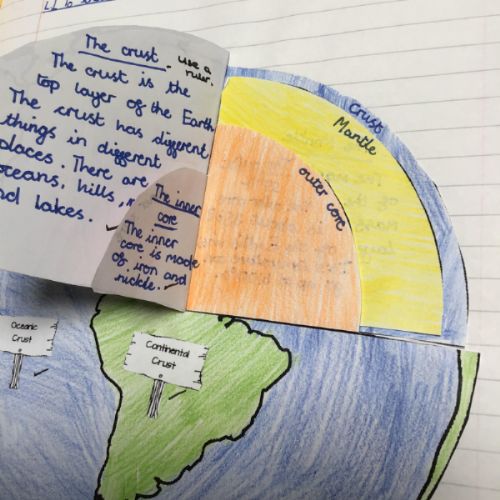 The crust.
use a
ruler.
The crust is the
top layer of the Earth
The crust has different
things in different
places. There are
oceans, hills,
and lakes.
The inner
core
The inner
core is made
of iron and
nickle.
Crust
Mantle
outer core
Oceanic
Crust
Continental
Crust